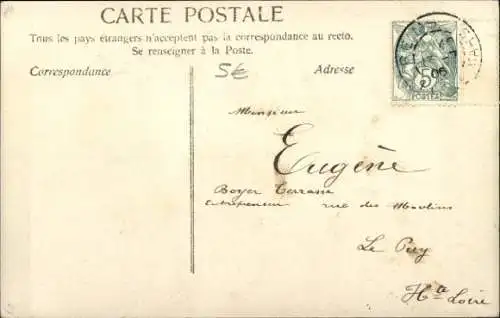 CARTE POSTALE
Tous les pays étrangers n'acceptent pas la correspondance au recto.
Se renseigner à la Poste.
Correspondance
5€
Adresse
5c
POSTES
Monsieur
Eugène
Boyer Terrasse
Entrepreneur rue des Moulins
Le Puy
Hte Loire